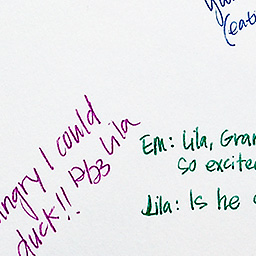 (eati
ngry I could
duck!! Lila
Em: Lila, Gran
so excite
Lila: Is he